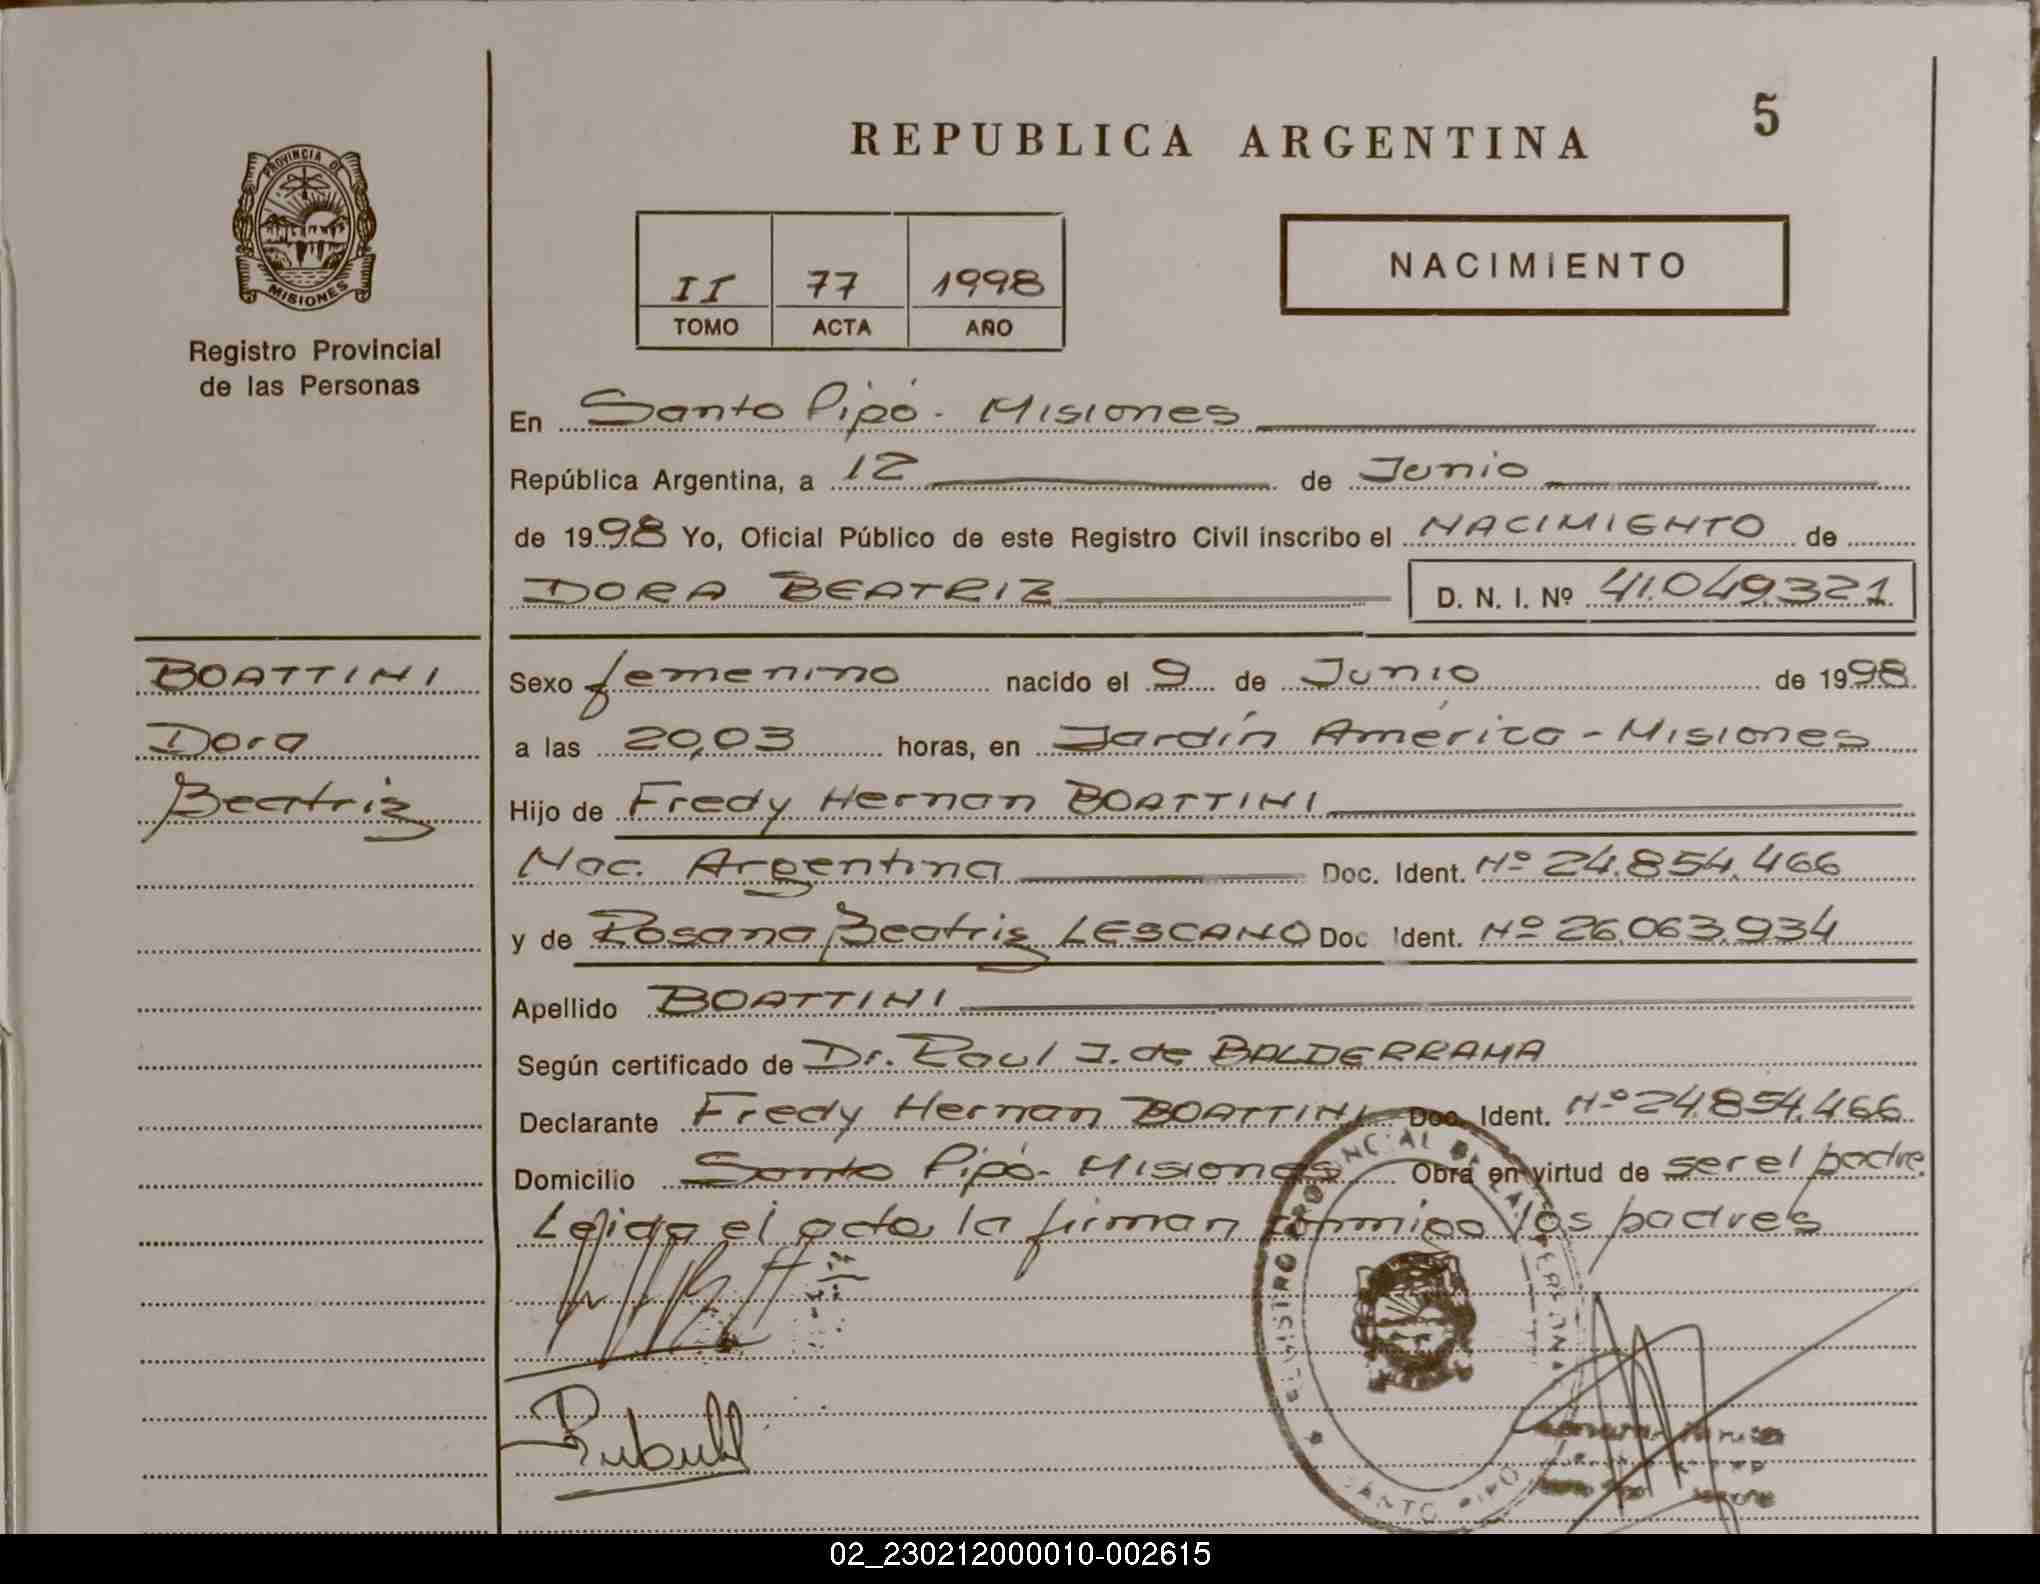 5
REPUBLICA ARGENTINA
PROVINCIA DE
MISIONES
Registro Provincial
de las Personas
II 77 1998
TOMO ACTA AÑO
NACIMIENTO
En Santo Pipó - Misiones
República Argentina, a 12 de Junio
de 1998 Yo, Oficial Público de este Registro Civil inscribo el NACIMIENTO de
DORA BEATRIZ D. N. I. Nº 41.049.321
BOATTINI
Dora
Beatriz
Sexo femenino nacido el 9 de Junio de 1998
a las 20,03 horas, en Jardín América - Misiones
Hijo de Fredy Hernan BOATTINI
Nac. Argentina Doc. Ident. Nº 24.854.466
y de Rosana Beatriz LESCANO Doc Ident. Nº 26.063.934
Apellido BOATTINI
Según certificado de Dr. Raul J. de BALDERRAMA
Declarante Fredy Hernan BOATTINI Doc. Ident. Nº 24.854.466
Domicilio Santo Pipó - Misiones Obra en virtud de ser el padre.
Leida el acta, la firman conmigo los padres
SANTO PIPO
02_230212000010-002615